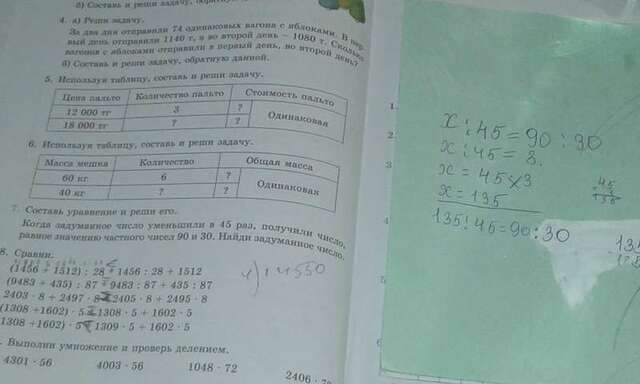 б) Составь и реши задачу, обратную
4. а) Реши задачу.
За два дня отправили 74 одинаковых вагона с яблоками. В пер-
вый день отправили 1140 т, а во второй день – 1080 т. Сколько
вагонов с яблоками отправили в первый день, во второй день?
б) Составь и реши задачу, обратную данной.
5. Используя таблицу, составь и реши задачу.
Цена пальто Количество пальто Стоимость пальто
12 000 тг 3 ? Одинаковая
18 000 тг ? ?
6. Используя таблицу, составь и реши задачу.
Масса мешка Количество Общая масса
60 кг 6 ? Одинаковая
40 кг ? ?
7. Составь уравнение и реши его.
Когда задуманное число уменьшили в 45 раз, получили число,
равное значению частного чисел 90 и 30. Найди задуманное число.
8. Сравни.
(1456 + 1512) : 28 1456 : 28 + 1512
(9483 + 435) : 87 9483 : 87 + 435 : 87
2403 · 8 + 2497 · 8 2405 · 8 + 2495 · 8
(1308 +1602) · 5 1308 · 5 + 1602 · 5
1308 +1602) · 5 1309 · 5 + 1602 · 5
Выполни умножение и проверь делением.
4301 · 56 4003 · 56 1048 · 72
1.
2.
3.
4
5
6
x : 45 = 90 : 30
x : 45 = 3.
x = 45 × 3
x = 135
135 : 45 = 90 : 30
45
3
135